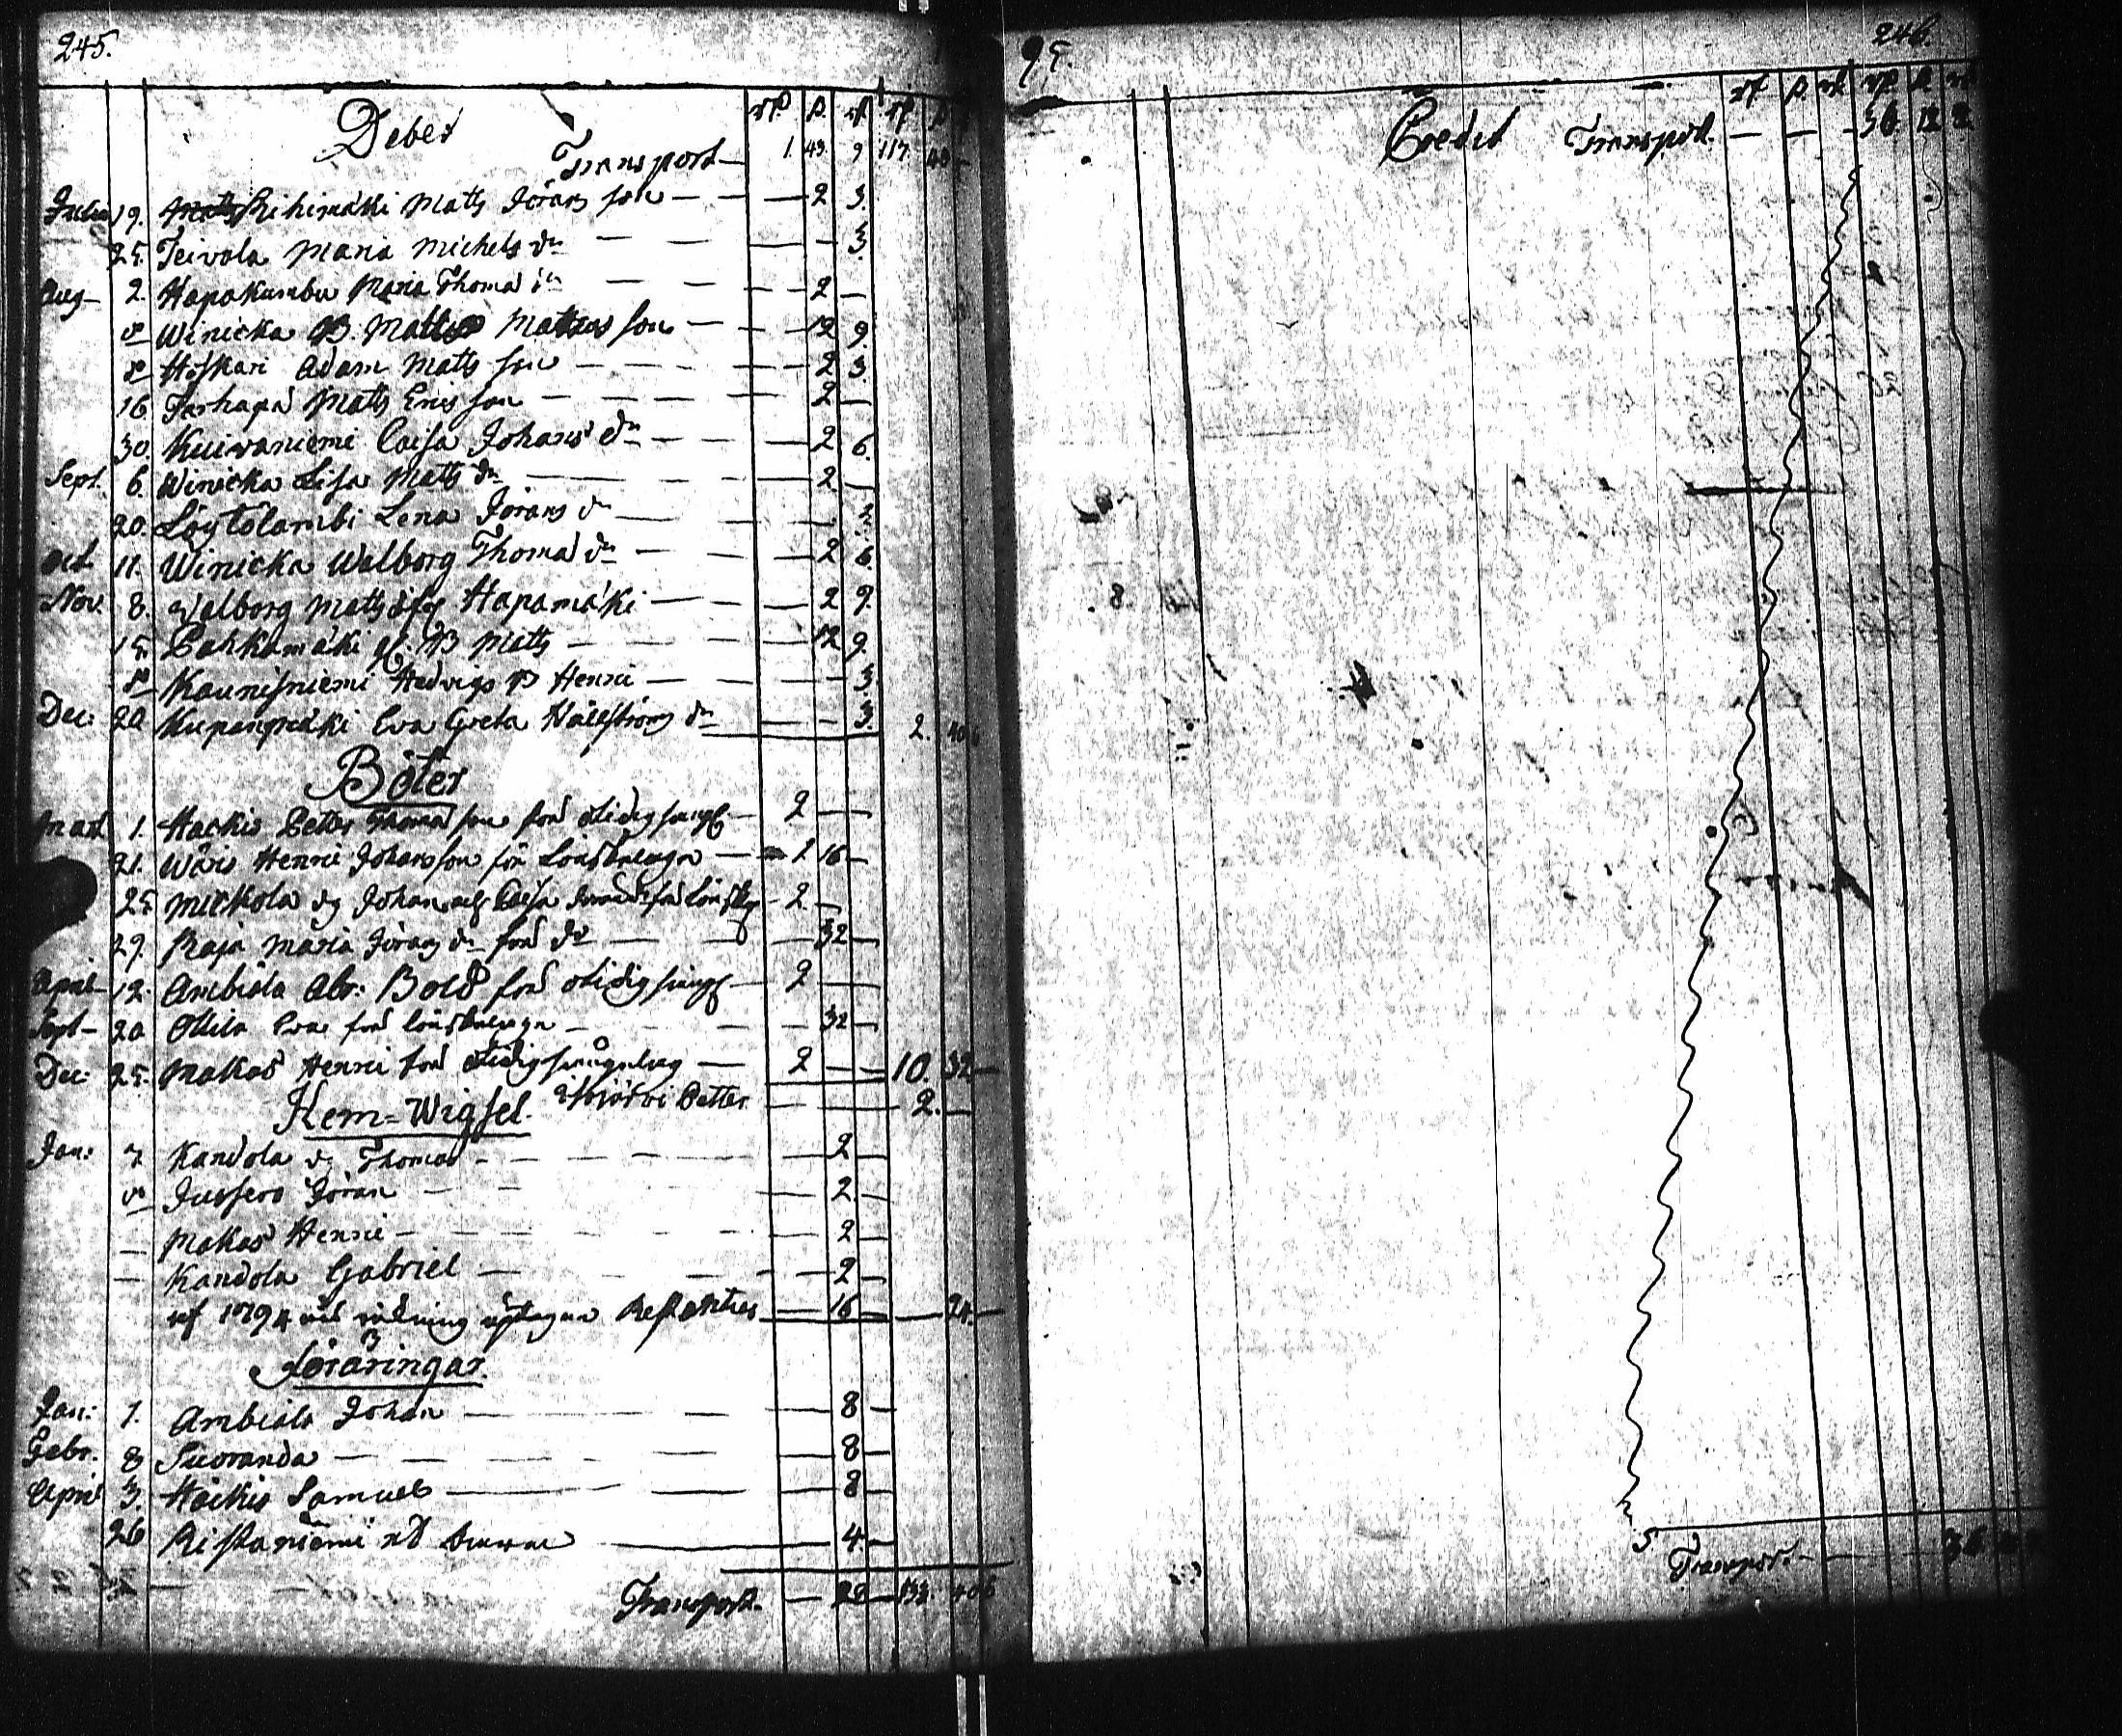 245.
Debet
Transport 1. 43. 9 117. 43
Julii 19. Rihimäki Matts Jörans son 2 3.
25. Teivola Maria Michels dr 3.
Aug 2. Hapakumbu Maria Thomas dr 2
do Winicka B. Matts Mattsson 12 9
do Höskari Adam Matts son 2 3.
16 Matts Erics son 2
30. Kuivaniemi Caisa Johans dr 2 6.
Sept. 6. Winicka Lisa Matts dr 2.
20. Löytölambi Lena Jörans dr 3.
Oct. 11. Winicka Walborg Thomas dr 2 6.
Nov. 8. Walborg Matts Hapamäki 2 9.
15. Pahkamäki gl. B Matts 12 9.
do Kaunisniemi Hedvigs B Henric 3.
Dec: 20 Eva Greta Hällström dr 3. 2. 40
Böter
Mart 1. Häckis Petter Thomas son för otidig 2
21. Wäris Henric Johansson för Lönskaläge 1 16
25. Mickola dg Johan och Caisa 2.
29. Raja Maria Jörans dr för do 32
April 12. Ambiala Abr: Bold för otidig 2
Sept 20 Ollila Eva för lönskaläge 32
Dec: 25. Makas Henric för otidig 2 10. 32
Hem=Wigsel. Petter 2.
Jan: 7 Kandola dg Thomas 2
do Jussero Jöran 2
Makas Henric 2
Kandola Gabriel 2
af 1794 Restantier 16 24
Föräringar.
Jan: 1. Ambiala Johan 8
Febr. 8 Suvranda 8
April 3. Häckis Samuel 8
26 Ristaniemi 4
Transport. 28 133. 40 6
95.
246.
Credit Transport. 36 12 2
Transport. 36